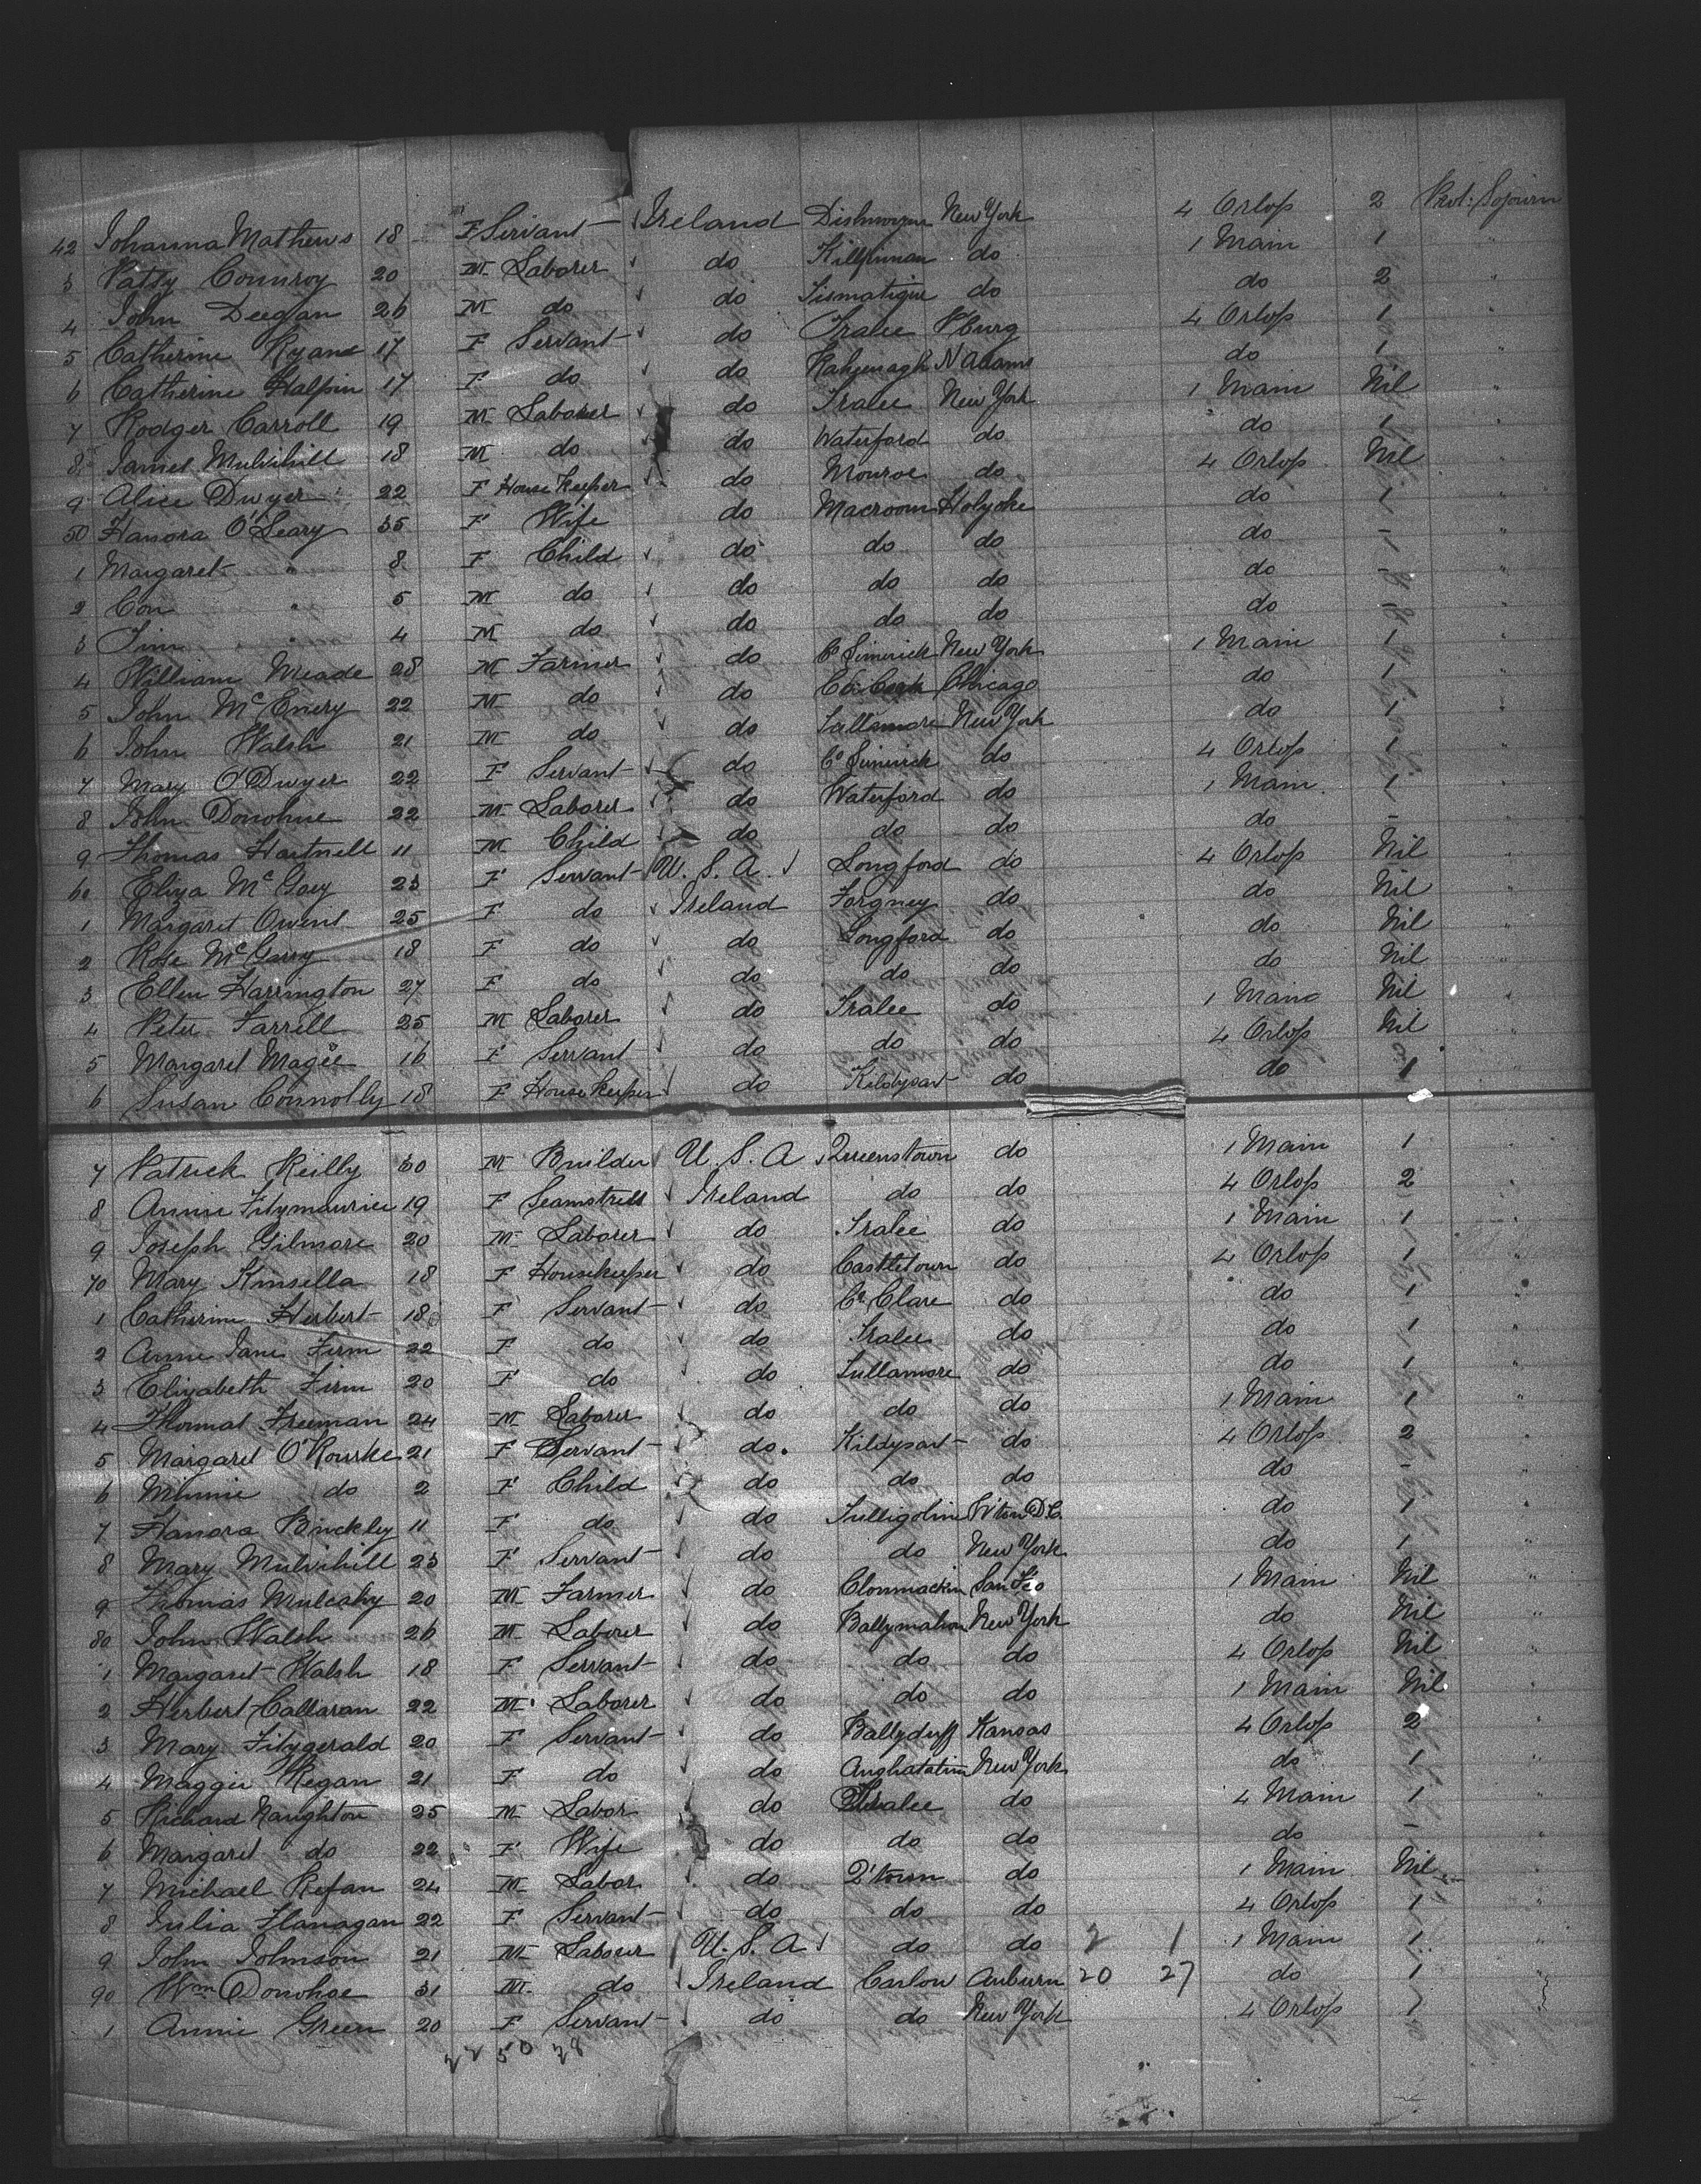 42 Johanna Mathews 18 F Servant Ireland New York 4 Orlop 2 Prot: Sojourn
3 Patsy Connroy 20 M Laborer do do 1 Main 1 "
4 John Deegan 26 M do do do do 2 "
5 Catherine Ryan 17 F Servant do Tralee 4 Orlop 1 "
6 Catherine Halpin 17 F do do N Adams do 1 "
7 Rodger Carroll 19 M Laborer do Tralee New York 1 Main Nil "
8 James Mulvihill 18 M do do Waterford do do 1 "
9 Alice Dwyer 22 F House Keeper do Monroe do 4 Orlop Nil "
50 Hanora O'Leary 35 F Wife do Macroom Holyoke do 1 "
1 Margaret " 8 F Child do do do do - "
2 Con " 5 M do do do do do - "
3 Tim " 4 M do do do do do - "
4 William Meade 28 M Farmer do Co Limerick New York 1 Main 1 "
5 John McEnery 22 M do do Co Cork Chicago do 1 "
6 John Walsh 21 M do do Tullamore New York do 1 "
7 Mary O'Dwyer 22 F Servant do Co Limerick do 4 Orlop 1 "
8 John Donohue 22 M Laborer do Waterford do 1 Main 1 "
9 Thomas Hartnell 11 M Child do do do do - "
60 Eliza McGoey 23 F Servant U.S.A. Longford do 4 Orlop Nil "
1 Margaret Owens 25 F do Ireland Forgney do do Nil "
2 Rose McGarry 18 F do do Longford do do Nil "
3 Ellen Harrington 27 F do do do do do Nil "
4 Peter Farrell 25 M Laborer do Tralee do 1 Main Nil "
5 Margaret Magee 16 F Servant do do do 4 Orlop Nil "
6 Susan Connolly 18 F House Keeper do Kildysart do do 1
7 Patrick Reilly 30 M Builder U.S.A Queenstown do 1 Main 1 "
8 Annie Fitzmaurice 19 F Seamstress Ireland do do 4 Orlop 2 "
9 Joseph Gilmore 20 M Laborer do Tralee do 1 Main 1 "
70 Mary Kinsella 18 F Housekeeper do Castletown do 4 Orlop 1 "
1 Catherine Herbert 18 F Servant do Co Clare do do 1 "
2 Annie Jane Firm 22 F do do Tralee do do 1 "
3 Elizabeth Firm 20 F do do Tullamore do do 1 "
4 Thomas Freeman 24 M Laborer do do do 1 Main 1 "
5 Margaret O'Rourke 21 F Servant do Kildysart do 4 Orlop 2 "
6 Minnie do 2 F Child do do do do - "
7 Hanora Buckley 11 F do do W'ton D.C. do 1 "
8 Mary Mulvihill 23 F Servant do do New York do 1 "
9 Thomas Mulcahy 20 M Farmer do San Fco 1 Main Nil "
80 John Walsh 26 M Laborer do Ballymahon New York do Nil "
1 Margaret Walsh 18 F Servant do do do 4 Orlop Nil "
2 Herbert Callaran 22 M Laborer do do do 1 Main Nil "
3 Mary Fitzgerald 20 F Servant do Ballyduff Kansas 4 Orlop 2 "
4 Maggie Regan 21 F do do New York do 1 "
5 Richard Naughton 25 M Labor do Tralee do 4 Main 1 "
6 Margaret do 22 F Wife do do do do - "
7 Michael 24 M Labor do Q'town do 1 Main Nil "
8 Julia Flanagan 22 F Servant do do do 4 Orlop 1 "
9 John Johnson 21 M Laborer U.S.A do do 2 1 1 Main 1 "
90 Wm Donohoe 31 M do Ireland Carlow Auburn 20 27 do 1
1 Annie Green 20 F Servant do do New York 4 Orlop 1
22 50 28